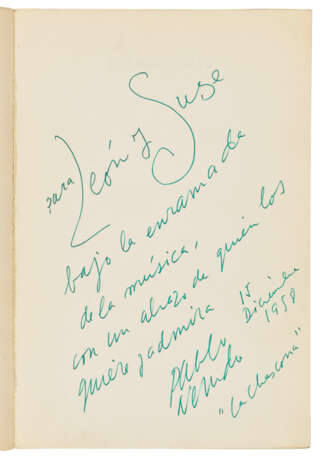 para León y Suse
bajo la enramada
de la música,
con un abrazo de quien los
quiere y admira
Pablo
Neruda
15
Diciembre
1958
"La Chascona"